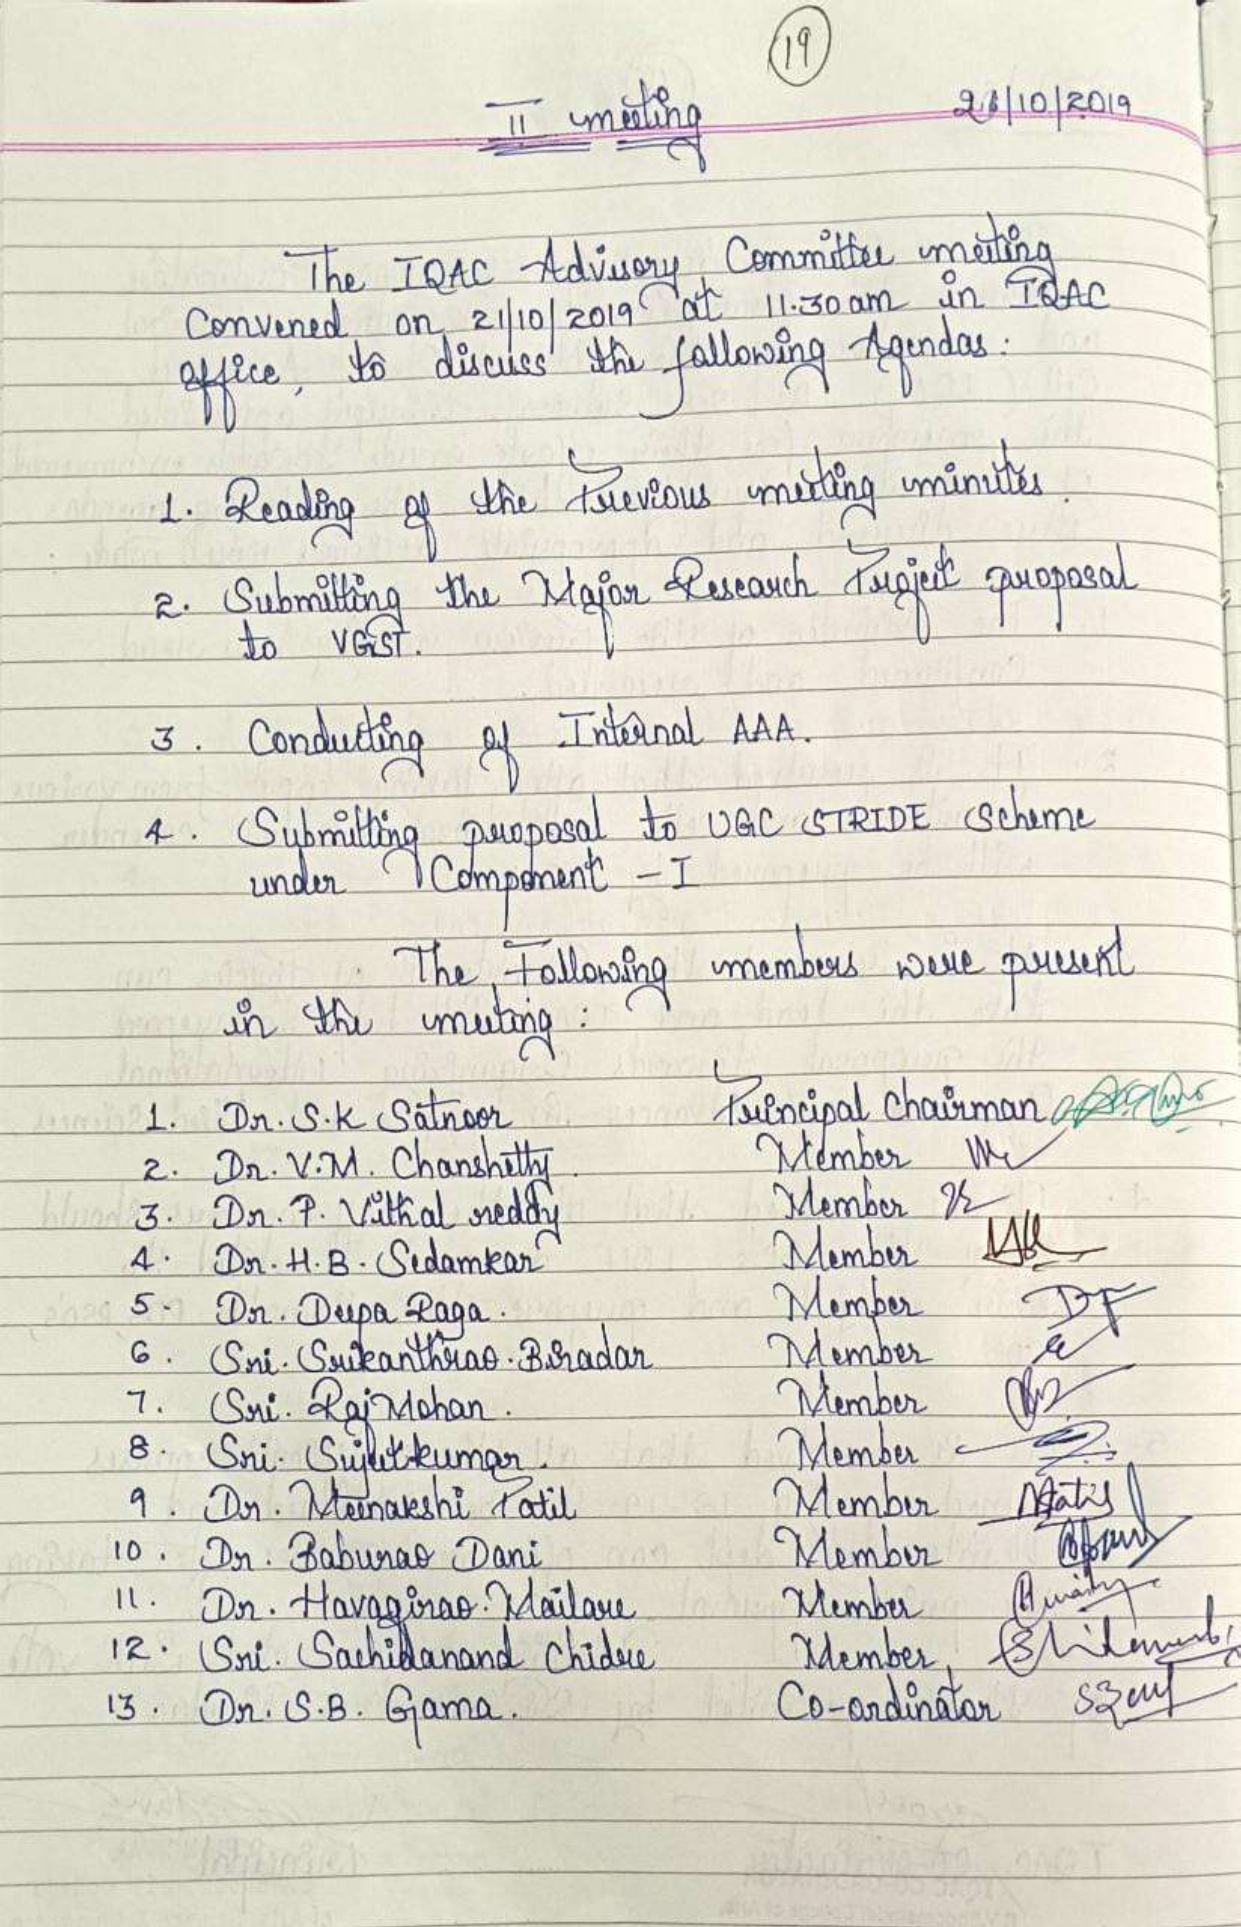 19
II meeting 21/10/2019
The IQAC Advisory Committee meeting
Convened on 21/10/2019 at 11.30 am in IQAC
office, to discuss the following Agendas:
1. Reading of the Previous meeting minutes.
2. Submitting the Major Research Project proposal
to VGST.
3. Conducting of Internal AAA.
4. Submitting proposal to UGC STRIDE Scheme
under Component - I
The Following members were present
in the meeting:
1. Dr. S.K Satnoor Principal Chairman
2. Dr. V.M. Chanshetty. Member
3. Dr. P. Vithal reddy Member
4. Dr. H.B. Sedamkar Member
5. Dr. Deepa Raga. Member
6. Sri. Srikanthrao. Biradar Member
7. Sri. RajMohan. Member
8. Sri. Sujeetkumar. Member
9. Dr. Meenakshi Patil Member
10. Dr. Baburao Dani Member
11. Dr. Havagirao. Mailare Member
12. Sri. Sachidanand Chidre Member
13. Dr. S.B. Gama. Co-ordinator